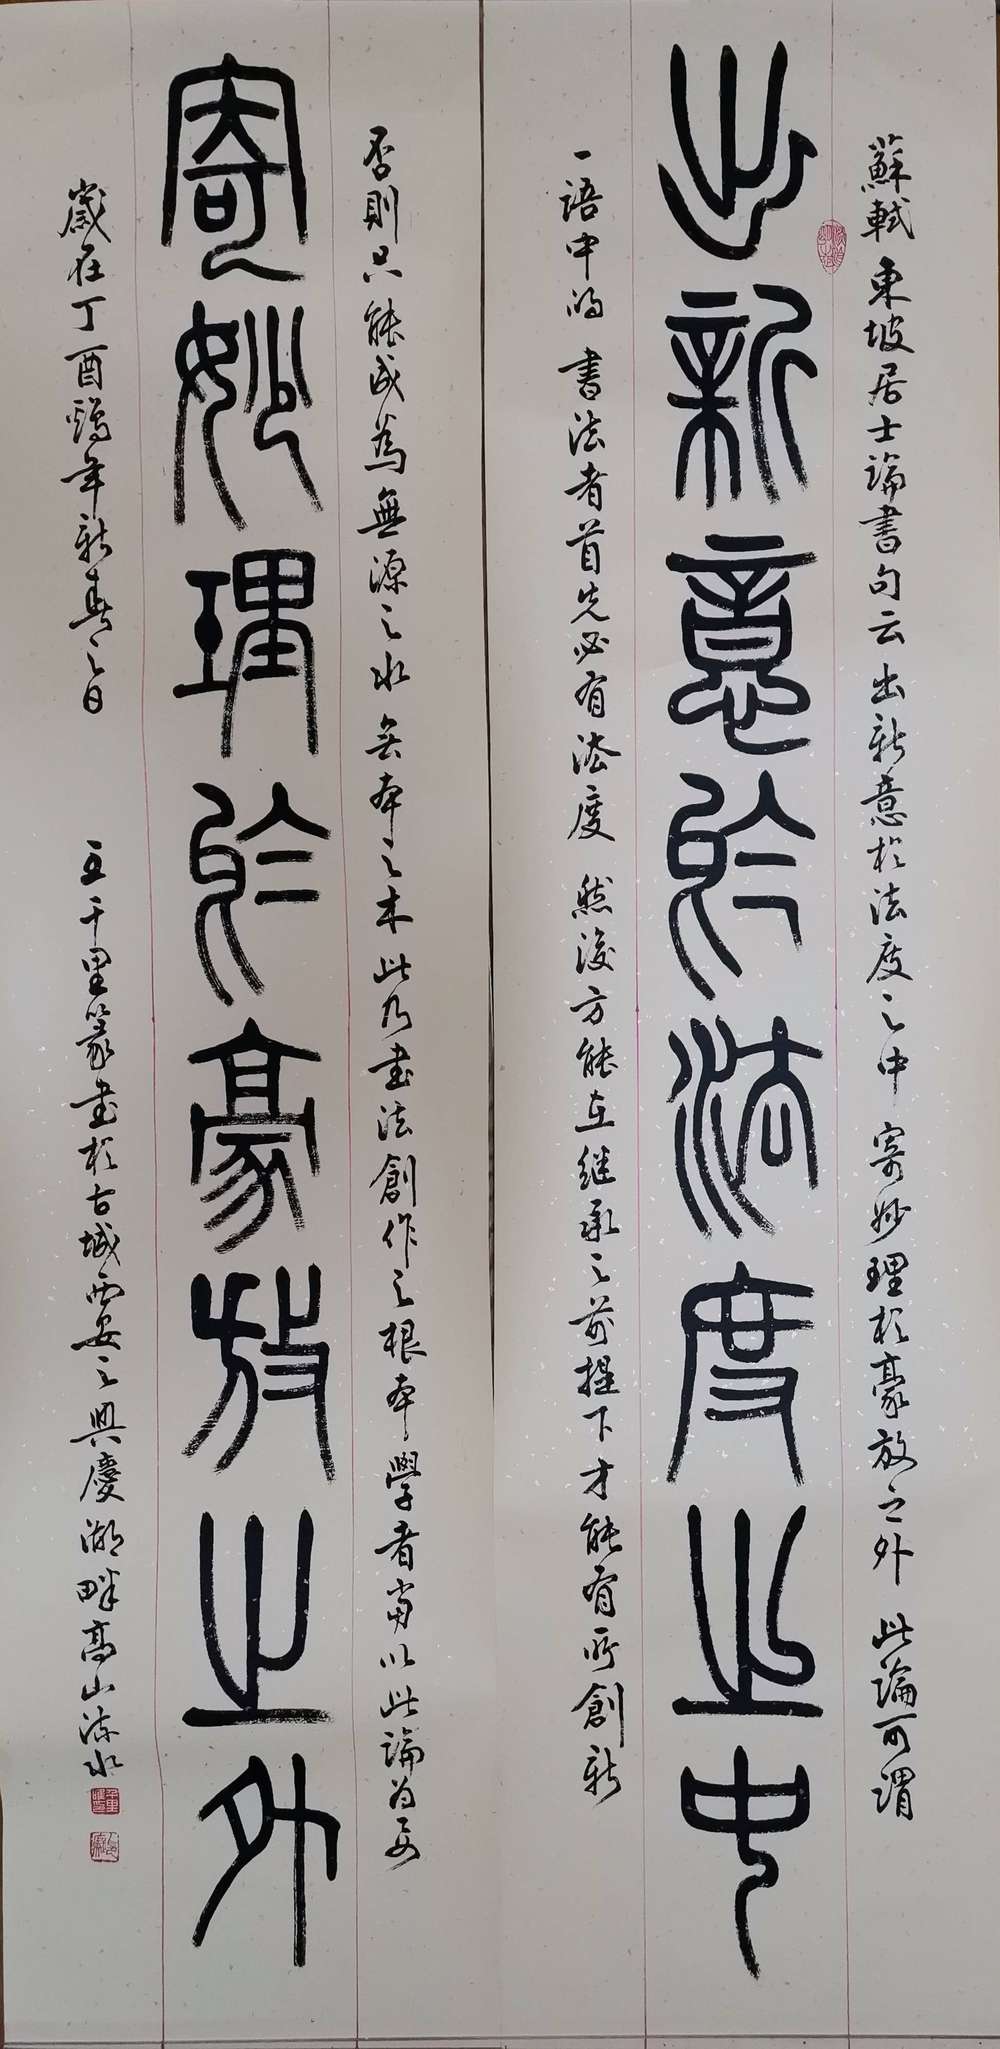 蘇軾東坡居士論書句云出新意於法度之中寄妙理於豪放之外此論可謂
出新意於法度之中
一語中的書法者首先必有法度然後方能在继承之前提下才能有所創新
否則只能成為無源之水無本之木此乃書法創作之根本學者當以此論為要
寄妙理於豪放之外
歲在丁酉鷄年新春之日
王千里篆書於古城西安之興慶湖畔高山流水